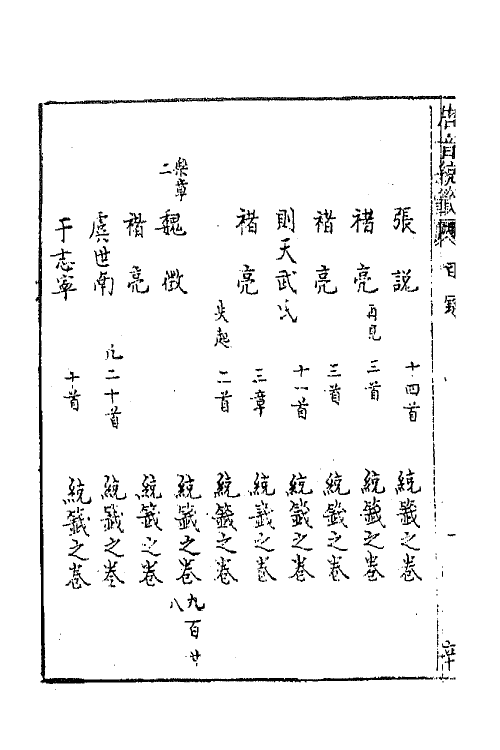 唐音統籤 目錄
張說 十四首 統籤之卷
褚亮 再見 三首 統籤之卷
褚亮 三首 統籤之卷
則天武氏 十一首 統籤之卷
褚亮 三章 統籤之卷
失起 二首 統籤之卷
樂章二 魏徵 統籤之卷 九百廿八
褚亮 統籤之卷
虞世南 凡二十首 統籤之卷
于志寧 十首 統籤之卷